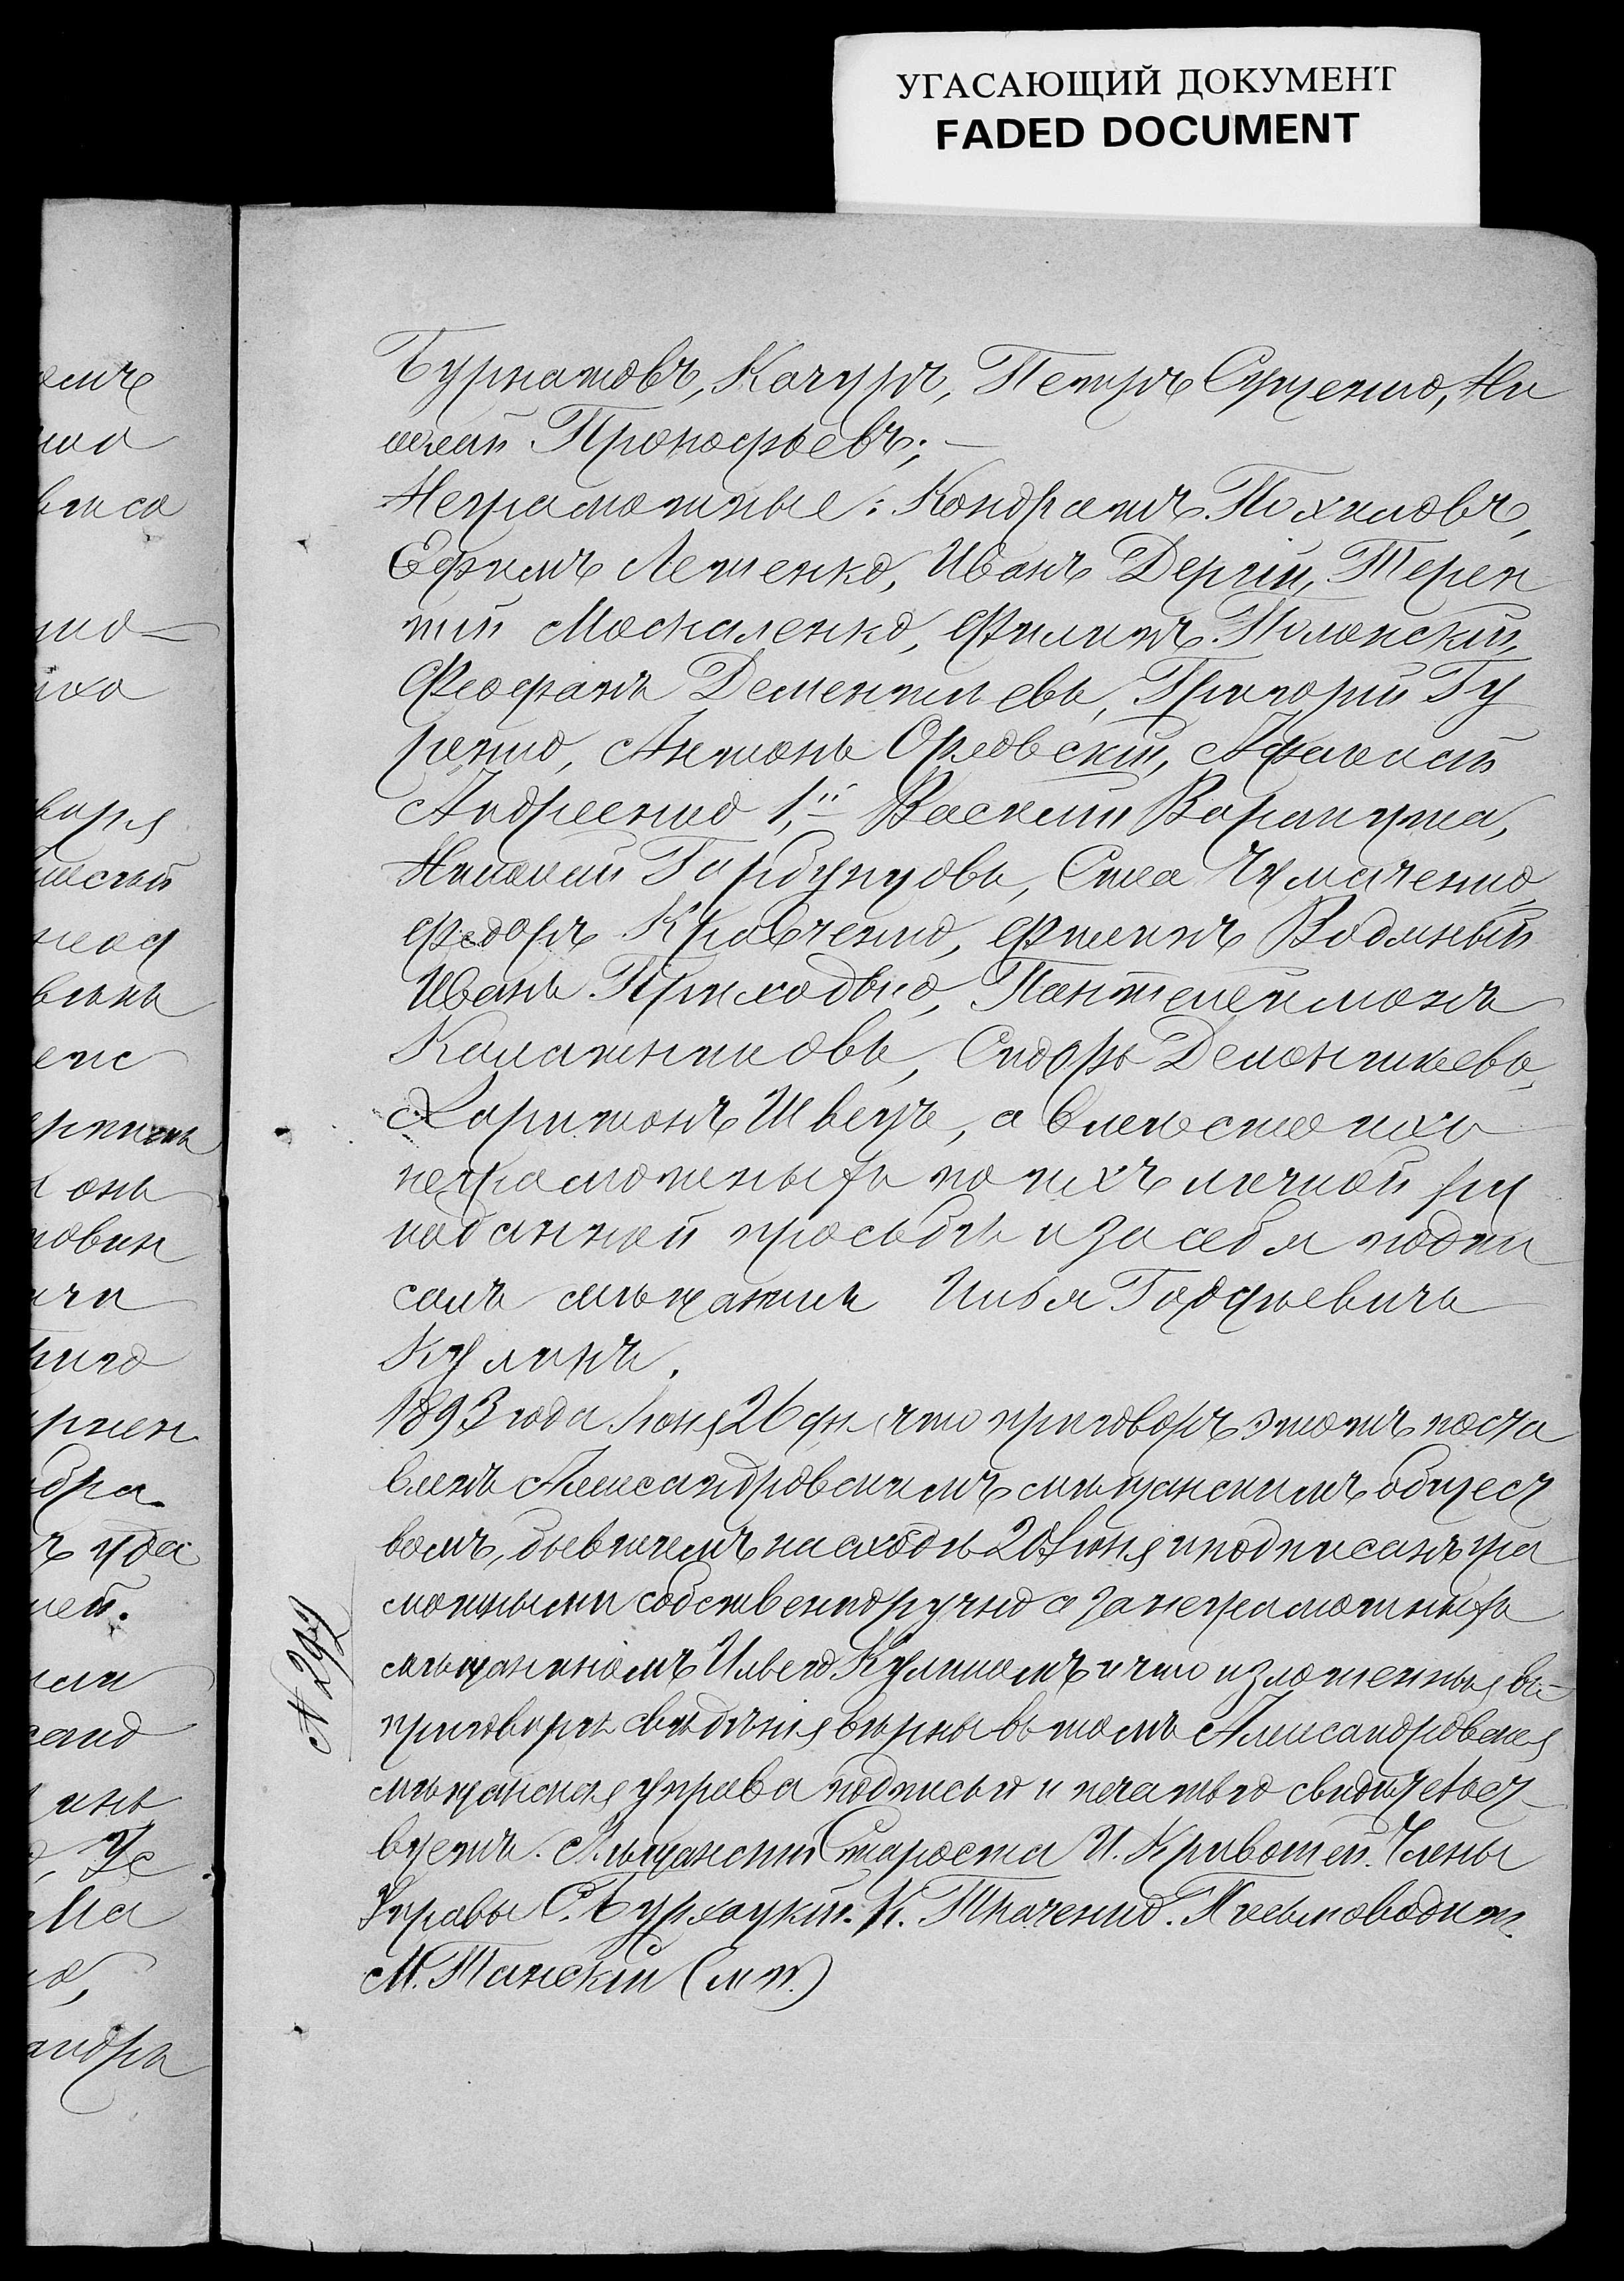 УГАСАЮЩИЙ ДОКУМЕНТ
FADED DOCUMENT
Бурнатовъ, Качуръ, Петръ Сущенко, Ни
колай Прокофьевъ; —
Неграмотные: Кондратъ Похиловъ,
Ефимъ Лещенко, Иванъ Дергій, Терен
тій Москаленко, Филипъ Полонскій,
Феофанъ Дементьевъ, Григорій Гу
ренко, Антонъ Орловскій, Афанасій
Андреенко 1й Василій
Николай Сила Чумаченко,
Федоръ Кравченко, Филипъ Водяный
Иванъ Приходько, Пантелеймонъ
Калашниковъ, Сидоръ
Харитонъ Швецъ, а вместо ихъ
неграмотныхъ по ихъ личной ру
коданной просьбѣ и за себя подпи
салъ мѣщанинъ Илья Гордѣевичъ
Куликъ.
1893 года Іюня 26 дня что приговоръ этотъ поста
вленъ Александровскимъ мѣщанскимъ общест
вомъ, бывшемъ на сходѣ 20 Іюня и подписанъ гра
мотными собственноручно а за неграмотныхъ
мѣщаниномъ Ильею Куликомъ и что изложенныя въ
приговорѣ свѣдѣнія вѣрны въ томъ Александровская
мѣщанская управа подписью и печатью свидѣтельст
вуетъ. Мѣщанскій Староста И. Кривошей. Члены
Управы С. К. Ткаченко. Письмоводит.
М. Танскій (м п.)
N 292